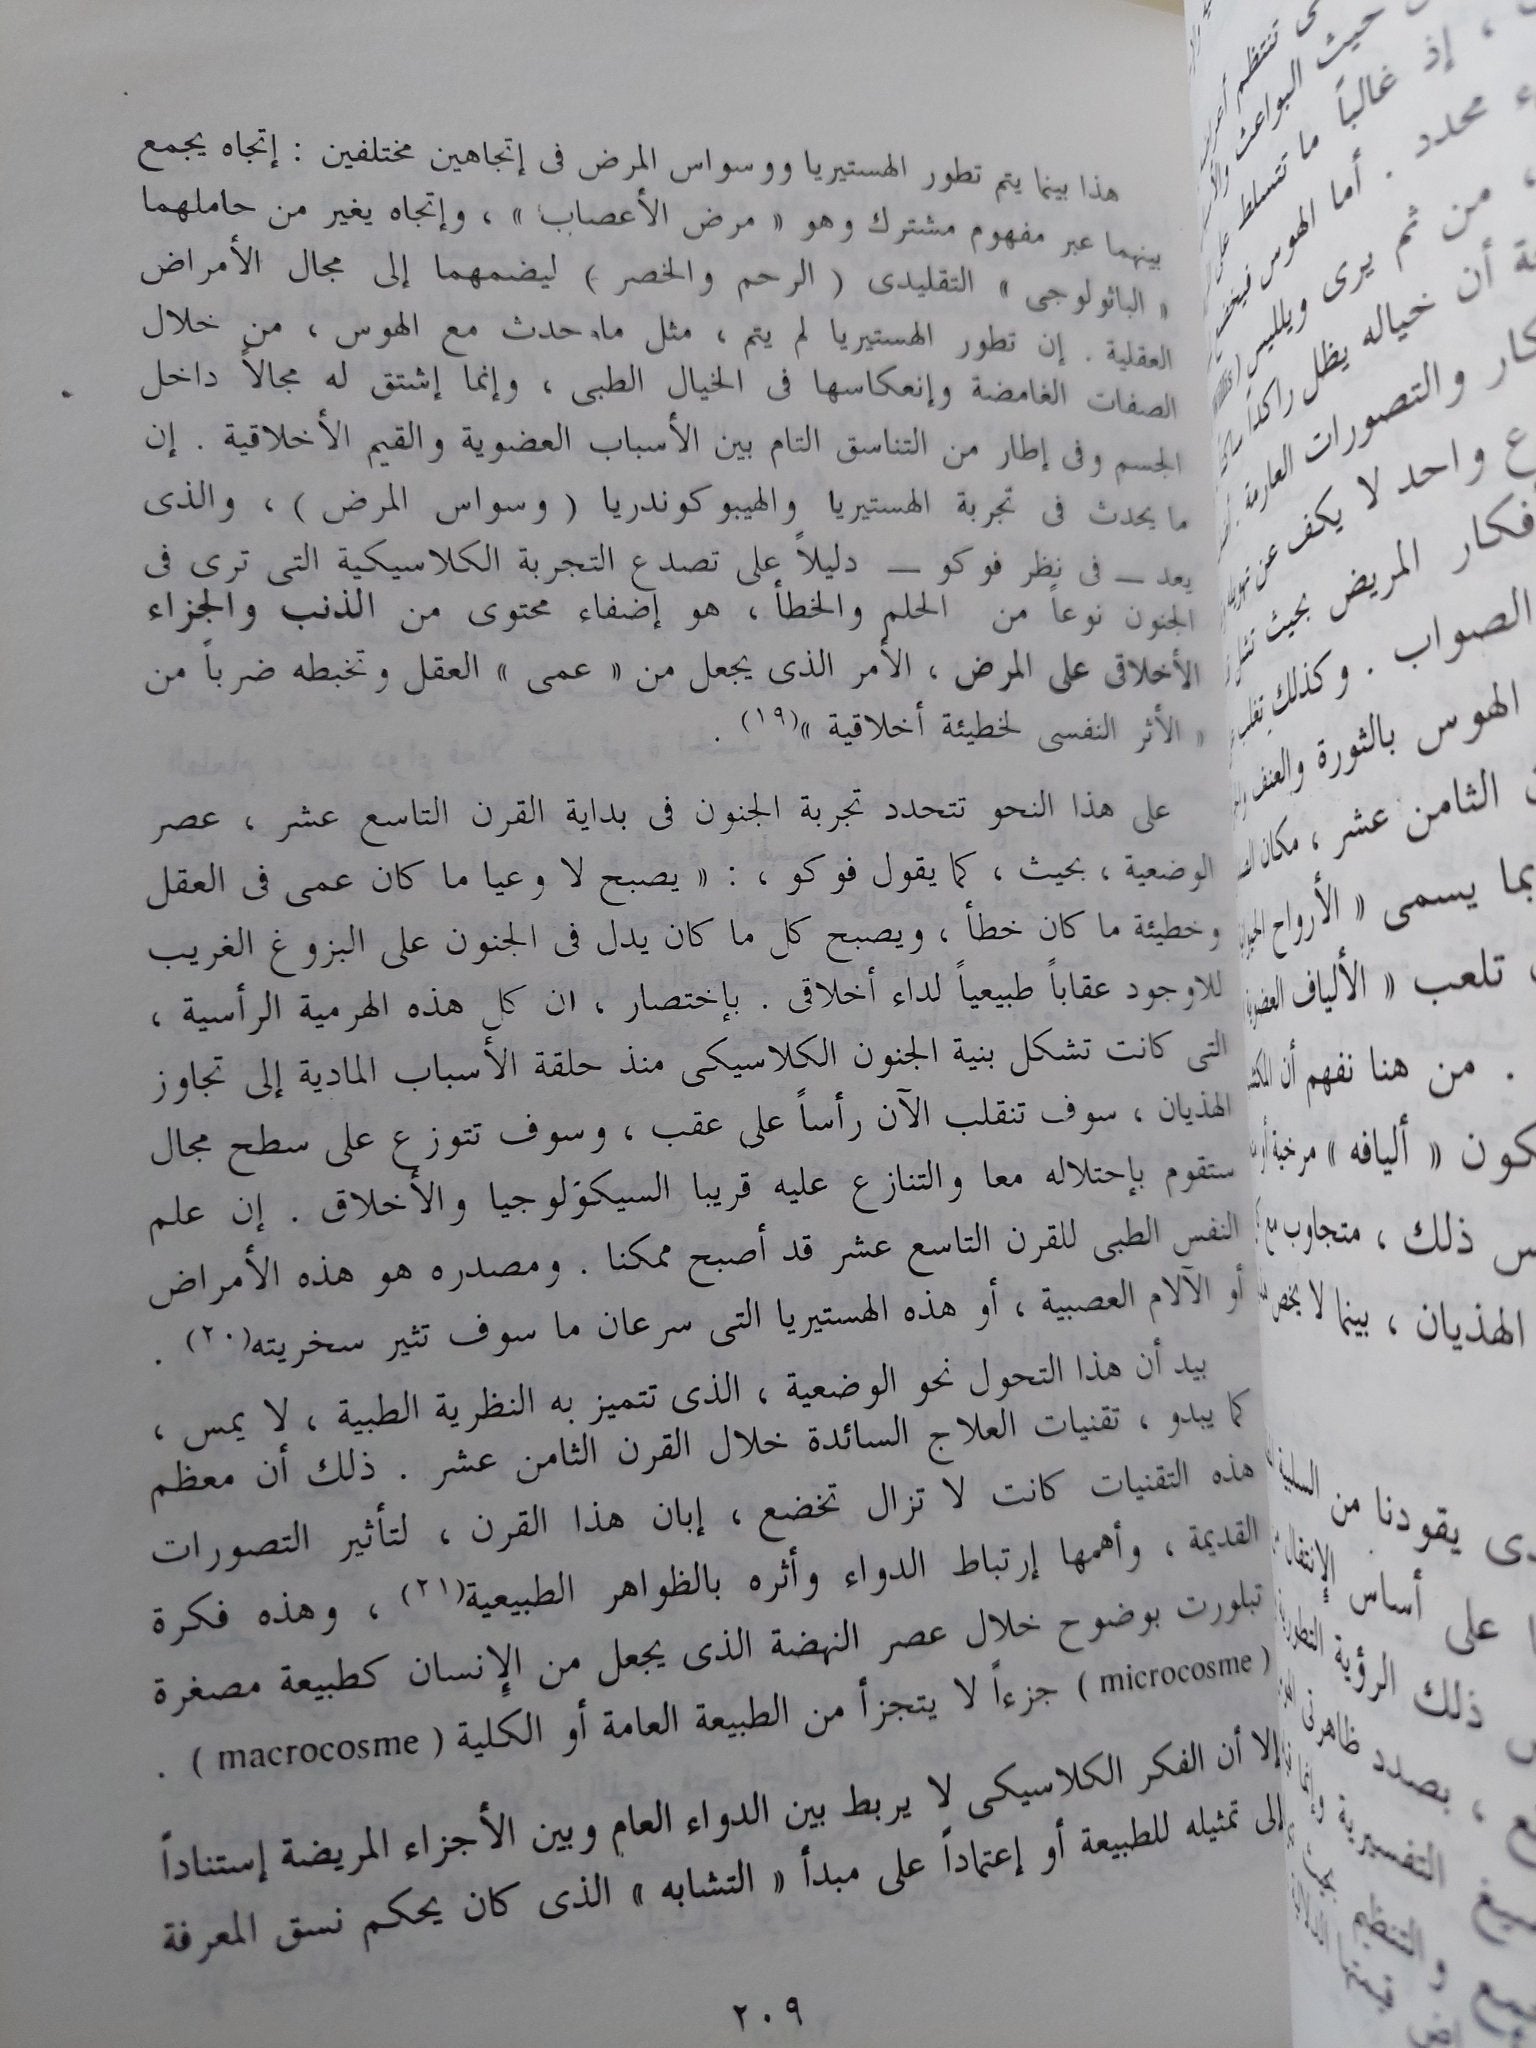 هذا بينما يتم تطور الهستيريا ووسواس المرض فى إتجاهين مختلفين : إتجاه يجمع
بينهما عبر مفهوم مشترك وهو « مرض الأعصاب » ، وإتجاه يغير من حاملهما
« الباثولوجى » التقليدى ( الرحم والخصر ) ليضمهما إلى مجال الأمراض
العقلية . إن تطور الهستيريا لم يتم ، مثل ما حدث مع الهوس ، من خلال
الصفات الغامضة وإنعكاسها فى الخيال الطبى ، وإنما إشتق له مجالاً داخل
الجسم وفى إطار من التناسق التام بين الأسباب العضوية والقيم الأخلاقية . إن
ما يحدث فى تجربة الهستيريا والهيبوكوندريا ( وسواس المرض ) ، والذى
يعد ــ فى نظر فوكو ــ دليلاً على تصدع التجربة الكلاسيكية التى ترى فى
الجنون نوعاً من الحلم والخطأ ، هو إضفاء محتوى من الذنب والجزاء
الأخلاقى على المرض ، الأمر الذى يجعل من « عمى » العقل وتخبطه ضرباً من
« الأثر النفسى لخطيئة أخلاقية »(١٩) .
على هذا النحو تتحدد تجربة الجنون فى بداية القرن التاسع عشر ، عصر
الوضعية ، بحيث ، كما يقول فوكو ، : « يصبح لا وعيا ما كان عمى فى العقل
وخطيئة ما كان خطأ ، ويصبح كل ما كان يدل فى الجنون على البزوغ الغريب
للاوجود عقاباً طبيعياً لداء أخلاقى . بإختصار ، ان كل هذه الهرمية الرأسية ،
التى كانت تشكل بنية الجنون الكلاسيكى منذ حلقة الأسباب المادية إلى تجاوز
الهذيان ، سوف تنقلب الآن رأساً على عقب ، وسوف تتوزع على سطح مجال
ستقوم بإحتلاله معا والتنازع عليه قريبا السيكولوجيا والأخلاق . إن علم
النفس الطبى للقرن التاسع عشر قد أصبح ممكنا . ومصدره هو هذه الأمراض
أو الآلام العصبية ، أو هذه الهستيريا التى سرعان ما سوف تثير سخريته(٢٠) .
بيد أن هذا التحول نحو الوضعية ، الذى تتميز به النظرية الطبية ، لا يمس ،
كما يبدو ، تقنيات العلاج السائدة خلال القرن الثامن عشر . ذلك أن معظم
هذه التقنيات كانت لا تزال تخضع ، إبان هذا القرن ، لتأثير التصورات
القديمة ، وأهمها إرتباط الدواء وأثره بالظواهر الطبيعية(٢١) ، وهذه فكرة
تبلورت بوضوح خلال عصر النهضة الذى يجعل من الإنسان كطبيعة مصغرة
( microcosme ) جزءاً لا يتجزأ من الطبيعة العامة أو الكلية ( macrocosme ) .
إلا أن الفكر الكلاسيكى لا يربط بين الدواء العام وبين الأجزاء المريضة إستناداً
إلى تمثيله للطبيعة أو إعتماداً على مبدأ « التشابه » الذى كان يحكم نسق المعرفة
٢٠٩
تنتظم
حيث البواعث
، إذ غالباً ما تتسلط على
محدد . أما الهوس
، من ثم يرى ويلليس
أن خياله يظل راكداً
والتصورات العارمة .
واحد لا يكف عن
أفكار المريض بحيث
الصواب . وكذلك
الهوس بالثورة والعنف
الثامن عشر ، مكان
بما يسمى « الأرواح
تلعب « الألياف العضوية
. من هنا نفهم أن
« أليافه » مرخية أو
ذلك ، متجاوب مع
الهذيان ، بينما لا يخص
يقودنا من السلبية
على أساس الإنتقال
ذلك الرؤية
، بصدد ظاهرتى
التفسيرية وإنما
والتنظيم